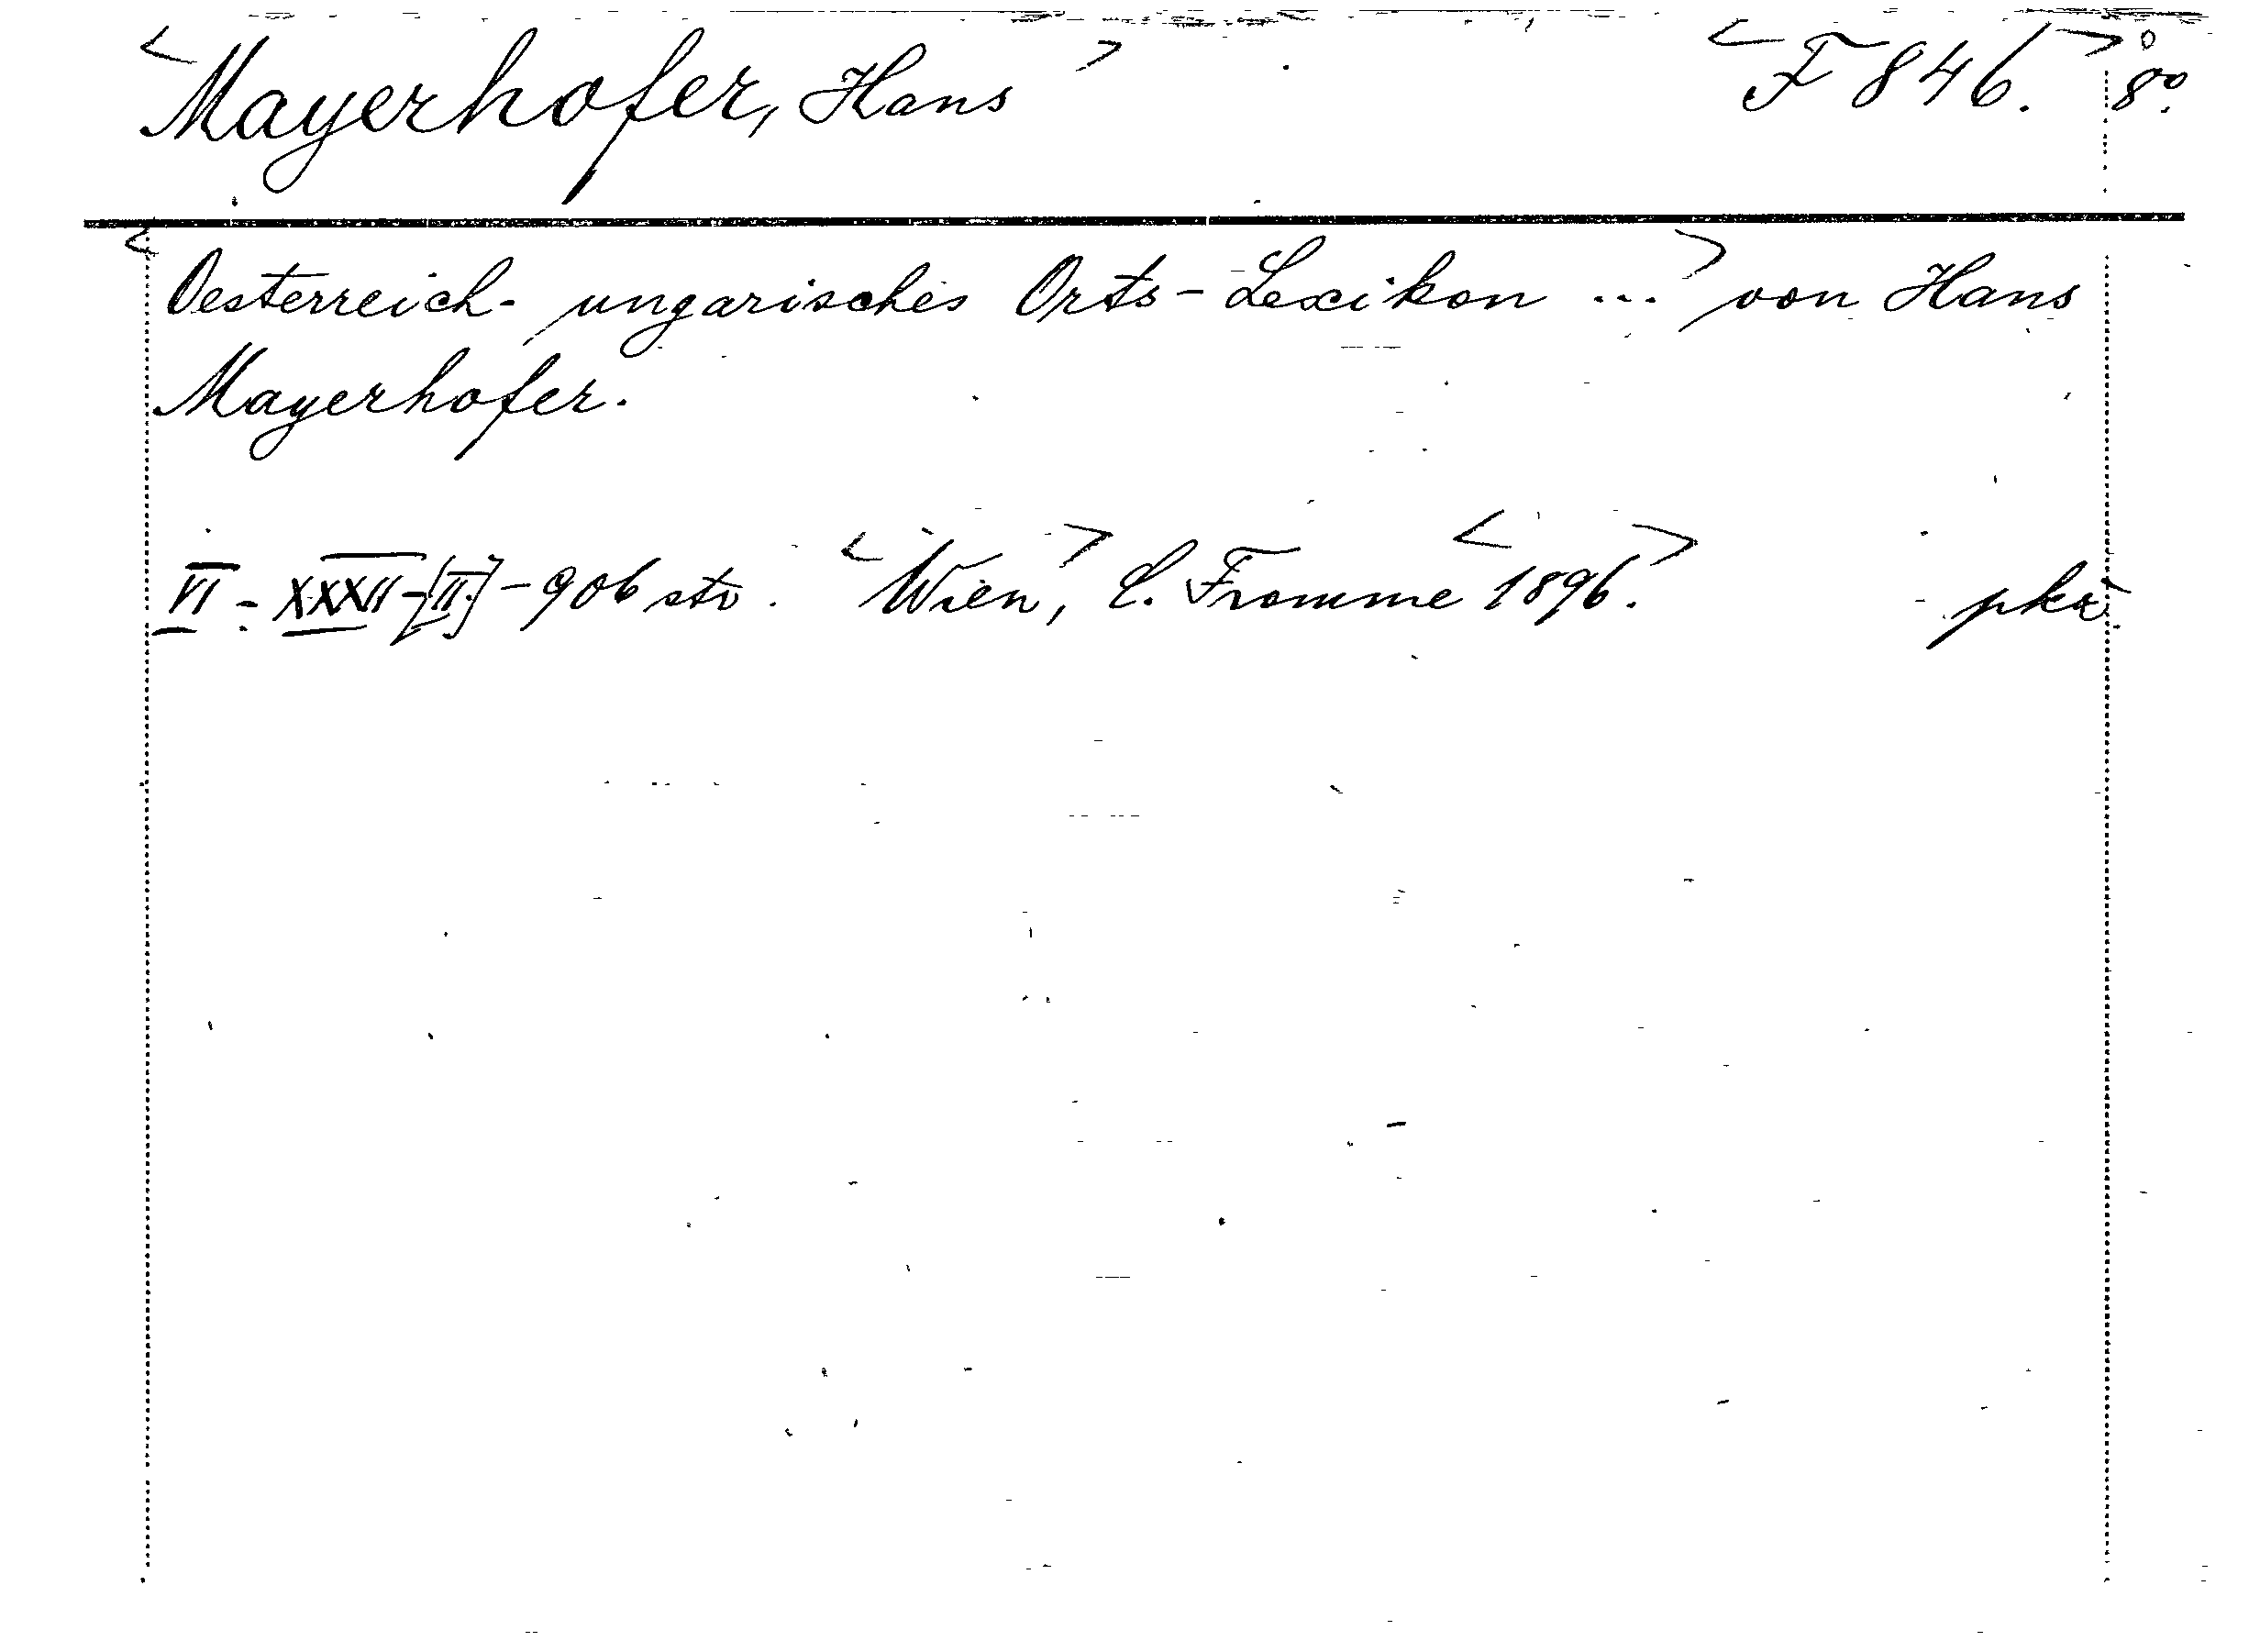 <Mayerhofer, Hans> <F 846.> 8⁰.
<Oesterreich-ungarisches Orts-Lexikon ...> von Hans
Mayerhofer.
VI - XXXII-[II] - 906 str. <Wien>, C. Fromme <1896.> pkř.